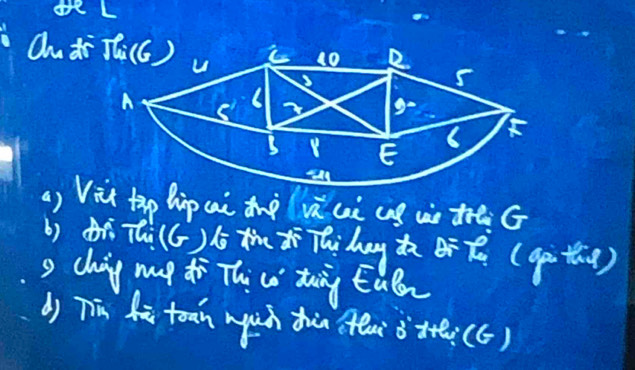 Đề 1
Cho đồ thị (G)
C 10 D
4 3 5
A 6 7 9 F
5 6
B 8 E
a) Viết tập hợp các đỉnh và các cạnh của đthị G
b) Đồ Thị (G) là đơn đồ Thị hay đa Đồ Thị (giải thích)
c) chứng minh đồ Thị có đường Euler
d) Tìm bài toán người đưa thư ở đthị (G)